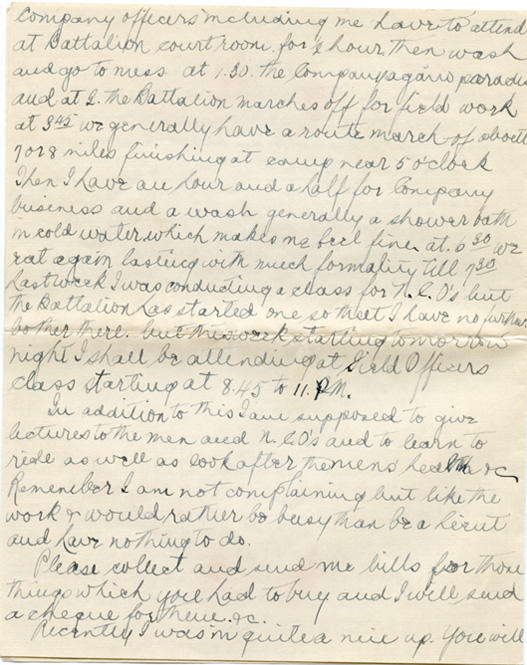 Company officers including me have to attend
at Battalion court room for ½ hour, then wash
and go to mess at 1.30. the Company again parades
and at 2. the Battalion marches off for field work
at 3 45 we generally have a route march of about
7 or 8 miles finishing at camp near 5 o'clock
Then I have an hour and a half for Company
business and a wash generally a shower bath
in cold water, which makes me feel fine. at 6 30 we
eat again lasting with much formality till 7 30
Last week I was conducting a class for N.C.O's but
the Battalion has started one so that I have no further
bother there. but this week starting tomorrow
night I shall be attending at Field Officers
class starting at 8.45 to 11. P.M.
In addition to this I am supposed to give
lectures to the men and N.CO's and to learn to
ride as well as look after the men's health &c
Remember I am not complaining but like the
work & would rather be busy than be a Lieut
and have nothing to do.
Please collect and send me bills for those
things which you had to buy and I will send
a cheque for these. &c.
Recently I was in quite a mix up. You will